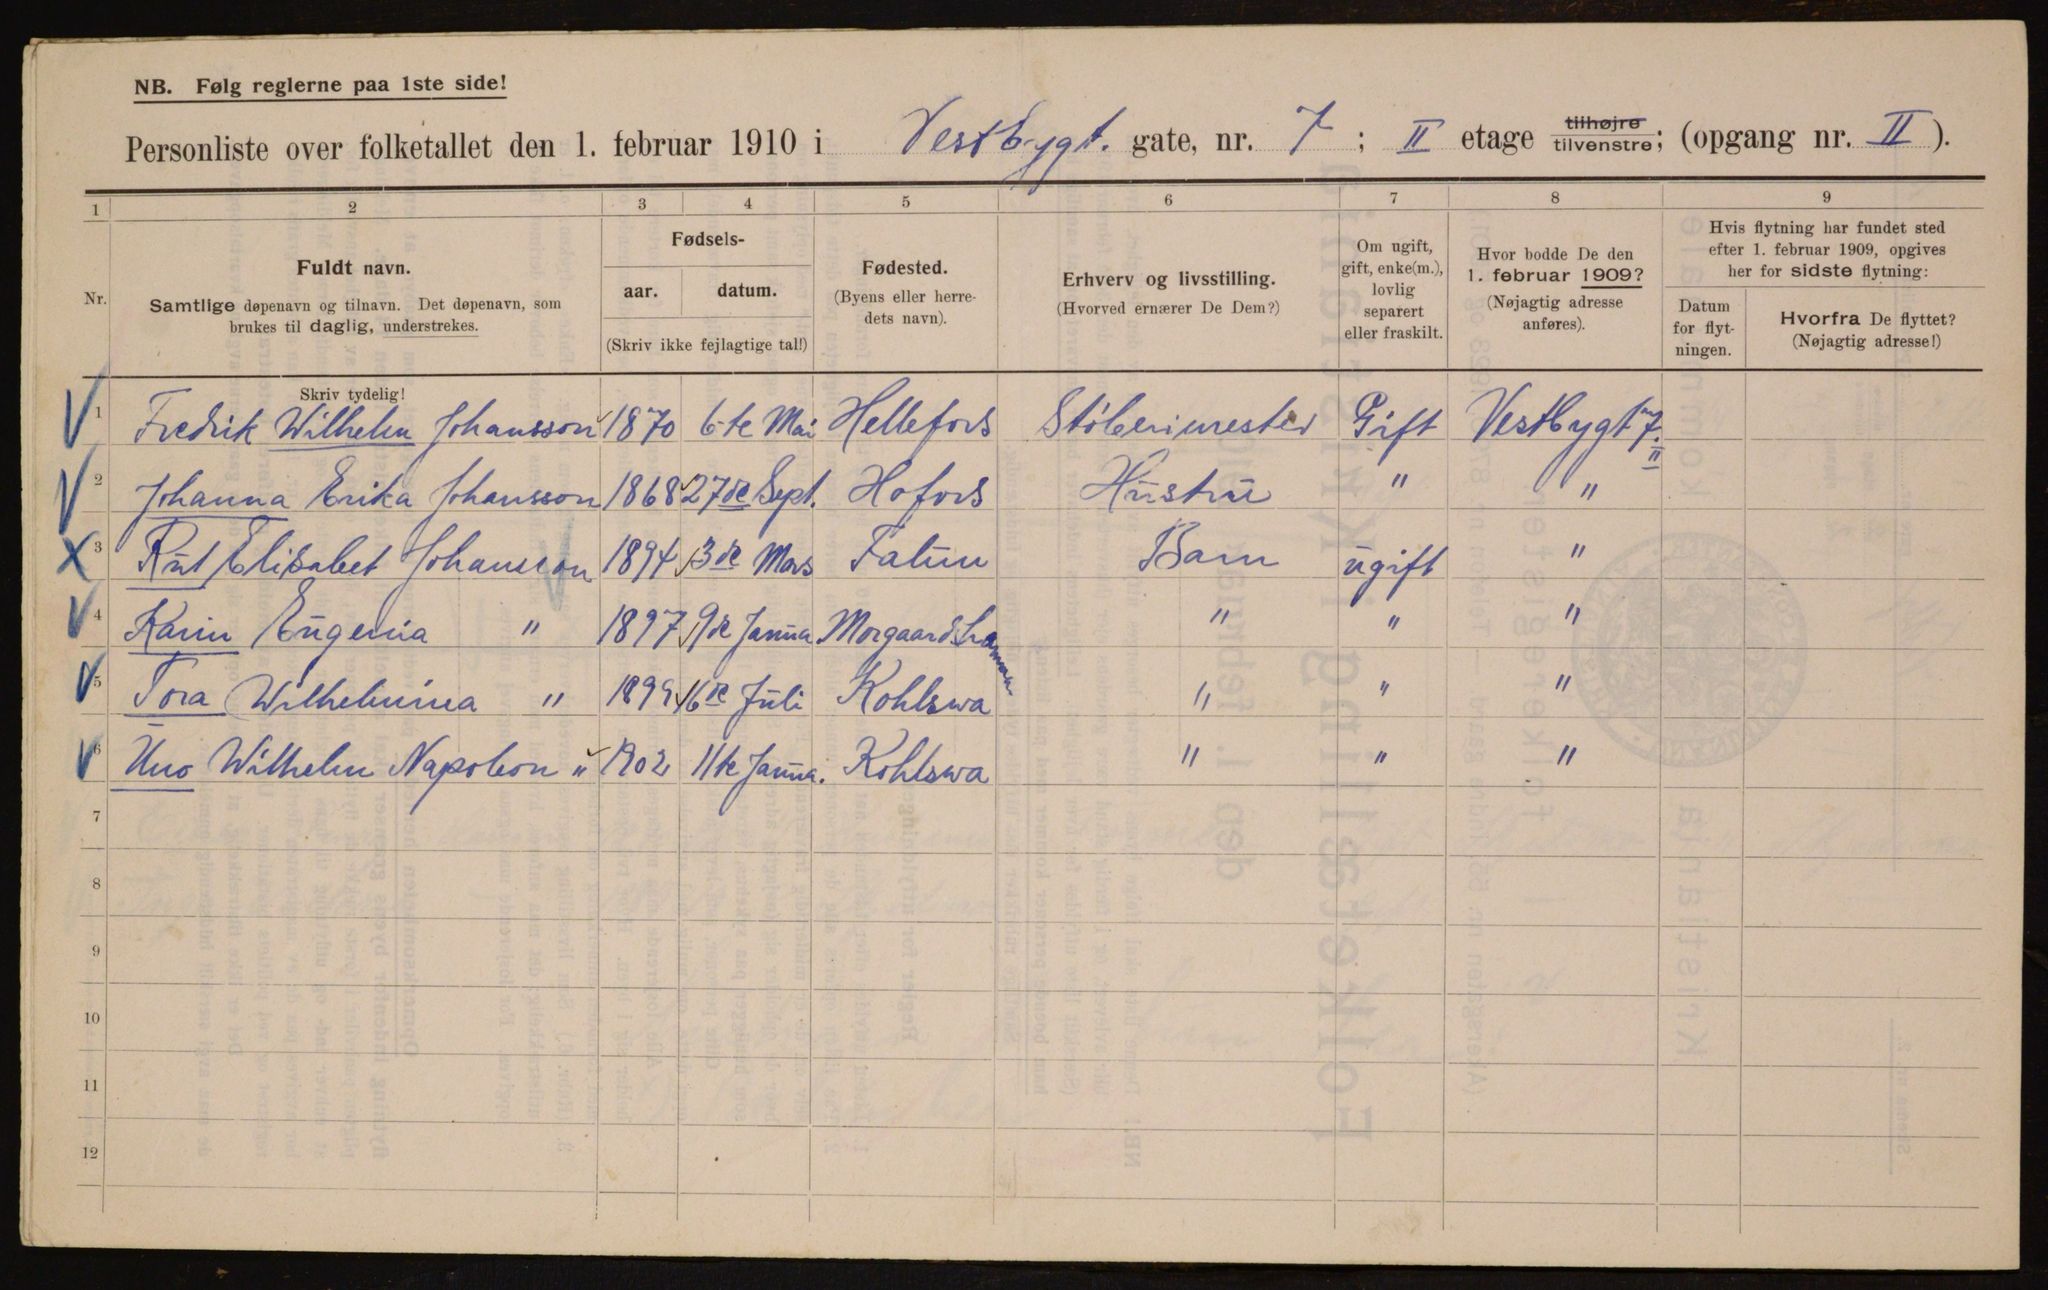 NB. Følg reglerne paa 1ste side!
Personliste over folketallet den 1. februar 1910 i Vestbygt. gate, nr. 7; II etage tilhøjre tilvenstre; (opgang nr. II).
1 2 3 4 5 6 7 8 9
Nr.
Fuldt navn.
Samtlige døpenavn og tilnavn. Det døpenavn, som
brukes til daglig, understrekes.
Skriv tydelig!
Fødsels-
aar. datum.
(Skriv ikke fejlagtige tal!)
Fødested.
(Byens eller herre-
dets navn).
Erhverv og livsstilling.
(Hvorved ernærer De Dem?)
Om ugift,
gift, enke(m.),
lovlig
separert
eller fraskilt.
Hvor bodde De den
1. februar 1909?
(Nøjagtig adresse
anføres).
Hvis flytning har fundet sted
efter 1. februar 1909, opgives
her for sidste flytning:
Datum
for flyt-
ningen.
Hvorfra De flyttet?
(Nøjagtig adresse!)
1 Fredrik Wilhelm Johansson 1870 6te Mai Hellefors Støberimester Gift Vestbygt 7. II
2 Johanna Erika Johansson 1868 27de Sept. Hofors Hustru " "
3 Rut Elisabet Johansson 1894 3de Mars Falun Barn ugift "
4 Karin Eugenia " 1897 9de Janua Morgaardshammar " " "
5 Tora Wilhelmina " 1899 16de Juli Kohlswa " " "
6 Uno Wilhelm Napoleon " 1902 11te Janua. Kohlswa " " "
7
8
9
10
11
12